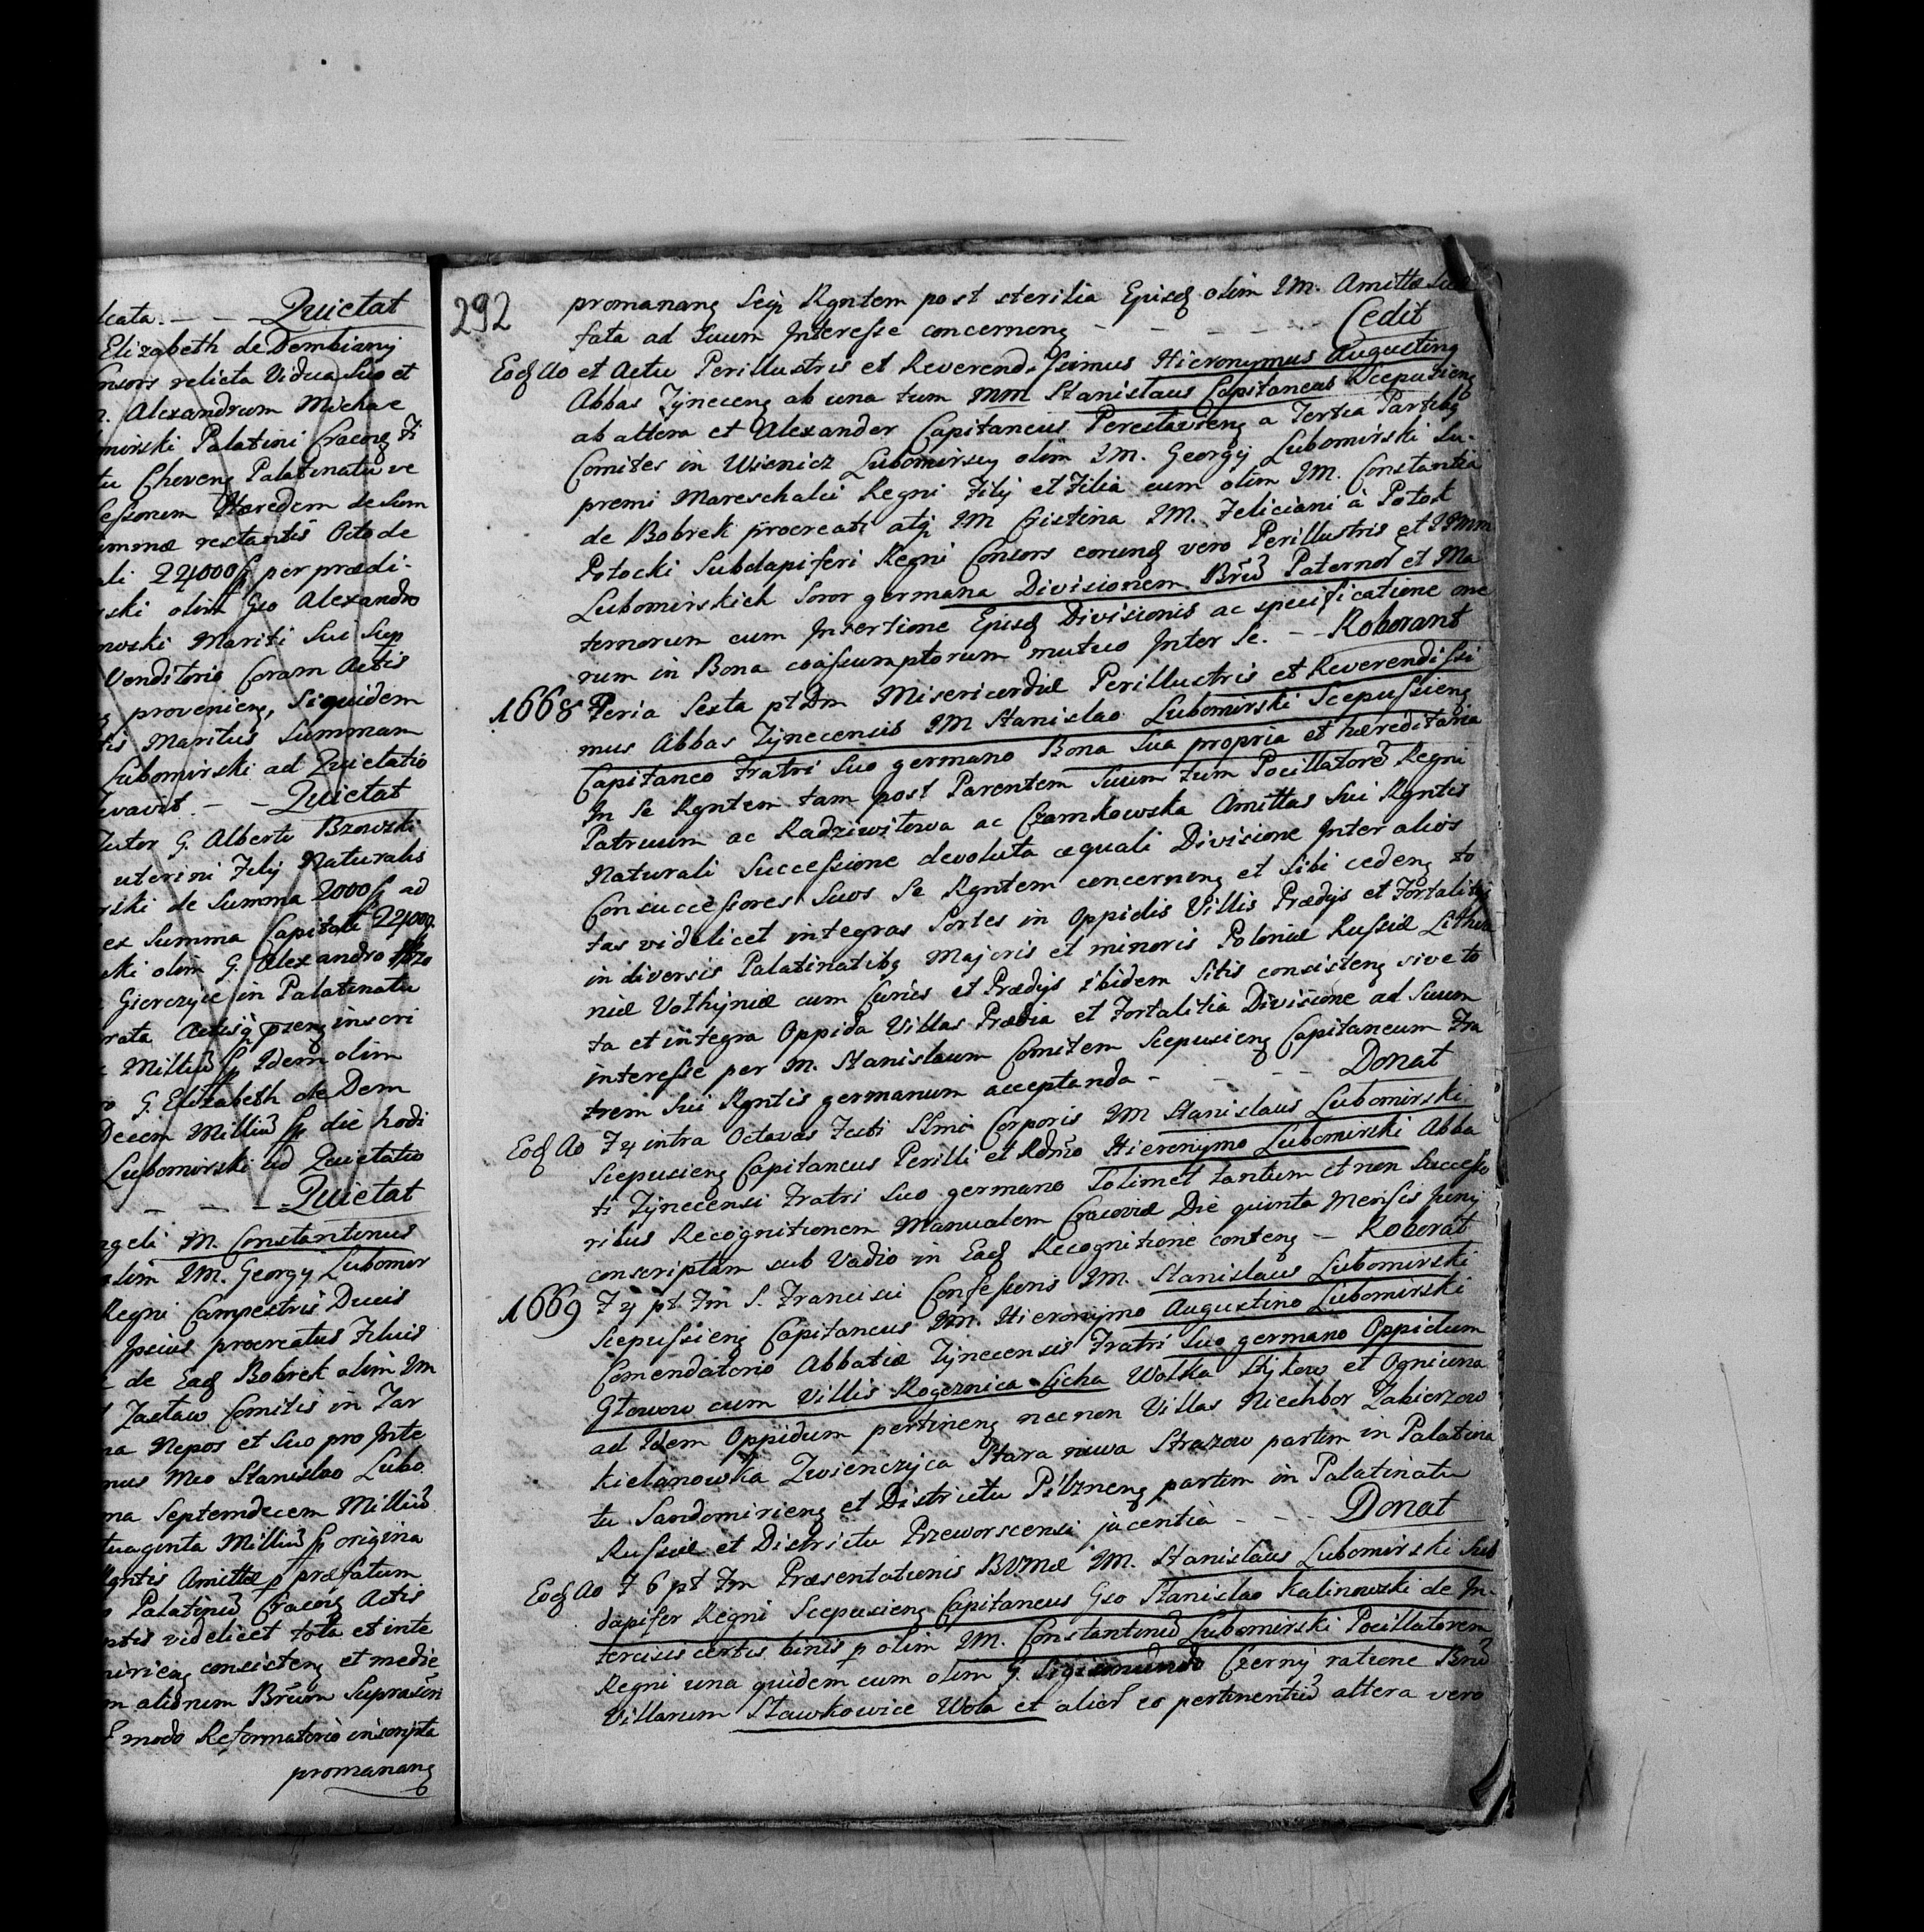 licata. – – Quietat
Elizabeth de Dembiany
Consors relicta Vidua Suo et
Alexandrum Michae
mirski Palatini Cracov
tu Choven Palatinatu ve
cessorem Hæredem de Sum
ummæ restantis Octo de
ali 24000 f per prædi-
rski olim Gso Alexandro
nowski Mariti Sui Sup
Venditorio Coram Actis
provenien, Siquidem
Maritus Summam
Lubomirski ad Quietatio
rvavit. – – Quietat
Tutor G. Alberto Bzowski
uterini Filij Naturalis
rski de Summa 2000 f ad
ex Summa Capitali 24000
ski olim G. Alexandro
Gierczyce in Palatinatu
rata Actisq pzen inscri
Milliu f Idem olim
G. Elizabeth de Dem
Decem Milliu f die hodi
Lubomirski ad Quietatio
– – – Quietat
ngeli M. Constantinus
olim IM. Georgij Lubomir
Regni Campestris Ducis
Ipsius procreatus Filius
de Ead Bobrek olim IM
Zasław Comitis in Tar
na Nepos et Suo pro Inte
mus Mco Stanislao Lubo
ma Septemdecem Milliu
tuaginta Milliu f origina
Rgntis Amittæ p præfatum
Palatinu Cracov Actis
ptis videlicet tota et inte
mirien consisten et medie
m aliorum Brum Suprascri
modo Reformatorio inscripta
promanan
292
promanan Seq Rgntem post sterilia Ejusd olim IM. Amittæ Suæ
fata ad Suum Interesse concernen – – – – – Cedit
Eod Ao et Actu Perillustris et Reverendissimus Hieronymus Augustin
Abbas Tynecen ab una tum MM Stanislaus Capitaneus Scepusien
ab altera et Alexander Capitaneus Pereclavien a Tertia Partib
Comites in Wisnicz Lubomirscy olim IM. Georgij Lubomirski Su-
premi Mareschalci Regni Filij et Filia cum olim IM. Constantia
de Bobrek procreati atq IM Cristina IM. Feliciani à Potok
Potocki Subdapiferi Regni Consors eorund vero Perillustris et IMM
Lubomirskich Soror germana Divisionem Bru Paternor et Ma
ternorum cum Insertione Ejusd Divisionis ac specificatione one
rum in Bona coassumptorum mutuo Inter Se. – – Roborant
1668 Feria Sexta pt Dm Misericordiæ Perillustris et Reverendissi
mus Abbas Tynecensis IM Stanislao Lubomirski Scepussien
Capitaneo Fratri Suo germano Bona Sua propria et hæreditaria
In Se Rgntem tam post Parentem Suum tum Pocillatore Regni
Patruum ac Radziwiłowa ac Czarnkowska Amittas Sui Rgntis
Naturali Successione devoluta æquali Divisione Inter alios
Consuccessores Suos Se Rgntem concernen et Sibi ceden to
tas videlicet integras Sortes in Oppidis Villis Prædijs et Fortalitij
in diversis Palatinatib Majoris et minoris Poloniæ Russiæ Lithva
niæ Vołhyniæ cum Curiis et Prædijs ibidem Sitis consisten sive to
ta et integra Oppida Villas Prædia et Fortalitia Divisione ad Suum
interesse per M. Stanislaum Comitem Scepusien Capitaneum Fra
trem Sui Rgntis germanum acceptanda – – – – Donat
Eod Ao F 4 intra Octavas Festi SSmi Corporis IM Stanislaus Lubomirski
Scepusien Capitaneus Perilli et Rdmo Hieronymo Lubomirski Abba
ti Tynecensi Fratri Suo germano Solimet tantum et non Successo
ribus Recognitionem Manualem Cracoviæ Die quinta Mensis Junij
conscriptam sub Vadio in Ead Recognitione conten – Roborat
1669 F 4 pt Fm S. Francisci Confessoris IM. Stanislaus Lubomirski
Scepussien Capitaneus IM. Hieronymo Augustino Lubomirski
Comendatorio Abbatiæ Tynecensis Fratri Suo germano Oppidum
Głowow cum Villis Rogoznica Cicha Wolska Stykow et Ogniwna
ad Idem Oppidum pertinen necnon Villas Niechbor Zabierzow
Kielanowka Zwienczyca Stara niwa Straszow partim in Palatina
tu Sandomirien et Districtu Pilznen partim in Palatinatu
Russiæ et Districtu Przeworscensi jacentia – – – Donat
Eod Ao F 6 pt Fm Præsentationis BVMæ IM. Stanislaus Lubomirski Sub
dapifer Regni Scepusien Capitaneus Gso Stanislao Kalinowski de In-
tercisis certis binis p olim IM. Constantinu Lubomirski Pocillatorem
Regni una quidem cum olim G. Sigismundo Czerny ratione Bru
Villarum Sławkowice Wola et alior eo pertinentiu altera vero